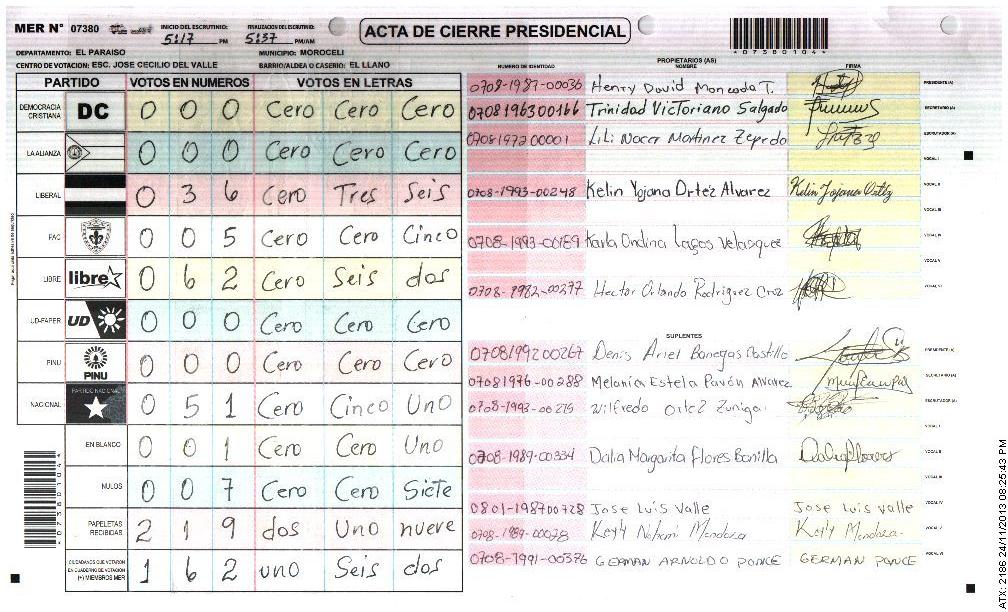 MER N° 07380
INICIO DEL ESCRUTINIO: 5:17 PM
FINALIZACION DEL ESCRUTINIO: 5:37 PM/AM
ACTA DE CIERRE PRESIDENCIAL
07380104
DEPARTAMENTO: EL PARAISO MUNICIPIO: MOROCELI
CENTRO DE VOTACION: ESC. JOSE CECILIO DEL VALLE BARRIO/ALDEA O CASERIO: EL LLANO
PARTIDO VOTOS EN NUMEROS VOTOS EN LETRAS
DEMOCRACIA CRISTIANA DC 0 0 0 Cero Cero Cero
LA ALIANZA 0 0 0 Cero Cero Cero
LIBERAL 0 3 6 Cero Tres Seis
PAC 0 0 5 Cero Cero Cinco
LIBRE libre 0 6 2 Cero Seis dos
UD-FAPER UD 0 0 0 Cero Cero Cero
PINU PINU 0 0 0 Cero Cero Cero
NACIONAL PARTIDO NACIONAL 0 5 1 Cero Cinco Uno
EN BLANCO 0 0 1 Cero Cero Uno
NULOS 0 0 7 Cero Cero Siete
PAPELETAS RECIBIDAS 2 1 9 dos Uno nueve
CIUDADANOS QUE VOTARON EN CUADERNO DE VOTACION (+) MIEMBROS MER 1 6 2 uno Seis dos
07380104
PROPIETARIOS (AS)
NUMERO DE IDENTIDAD NOMBRE FIRMA
0708-1987-00036 Henry David Moncada T. PRESIDENTE (A)
0708196300166 Trinidad Victoriano Salgado SECRETARIO (A)
0708197200001 Lili Martinez Zepeda ESCRUTADOR (A)
VOCAL I
0708-1993-00248 Kelin Yojana Ortez Alvarez VOCAL II
VOCAL III
0708-1993-00189 Karla Ondina Lagos Velasquez VOCAL IV
VOCAL V
0708-1982-00377 Hector Orlando Rodriguez Cruz VOCAL VI
SUPLENTES
0708199200267 Denis Ariel Banegas Castillo PRESIDENTE (A)
07081976-00288 Melania Estela Pavón Alvarez SECRETARIO (A)
0708-1993-00275 Wilfredo Ortez Zuniga ESCRUTADOR (A)
VOCAL I
0708-1989-00334 Dalia Margarita Flores Bonilla VOCAL II
VOCAL III
0801-198700728 Jose Luis Valle Jose Luis Valle VOCAL IV
0708-1989-00078 Keyly Nohemi Mendoza Keyly Mendoza VOCAL V
0708-1991-00376 GERMAN ARNOLDO PONCE GERMAN PONCE VOCAL VI
ATX: 2186 24/11/2013 08:25:43 PM